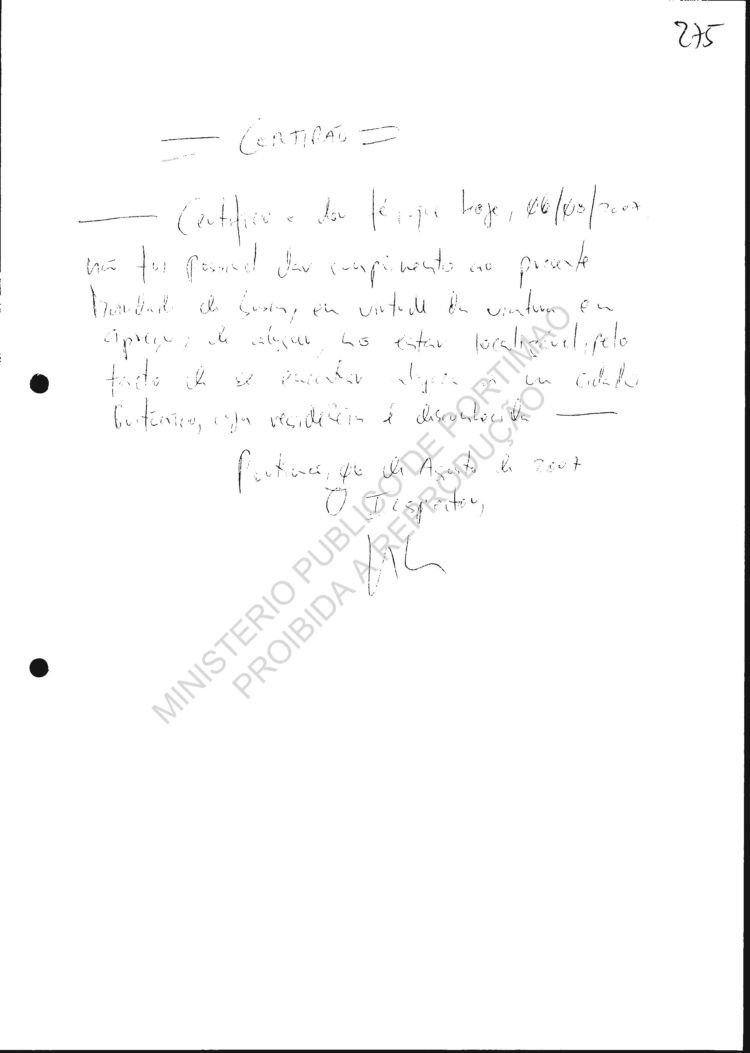 275
CERTIDÃO
Certifico e dou fé, que hoje, 06/08/2007,
não foi possível dar cumprimento ao presente
Mandado de busca, em virtude da viatura em
apreço, de aluguer, não estar localizável, pelo
facto de se encontrar alugada a um cidadão
britânico, cuja residência é desconhecida
Portimão, 06 de Agosto de 2007
O Inspector,
MINISTERIO PUBLICO DE PORTIMAO
PROIBIDA A REPRODUÇÃO